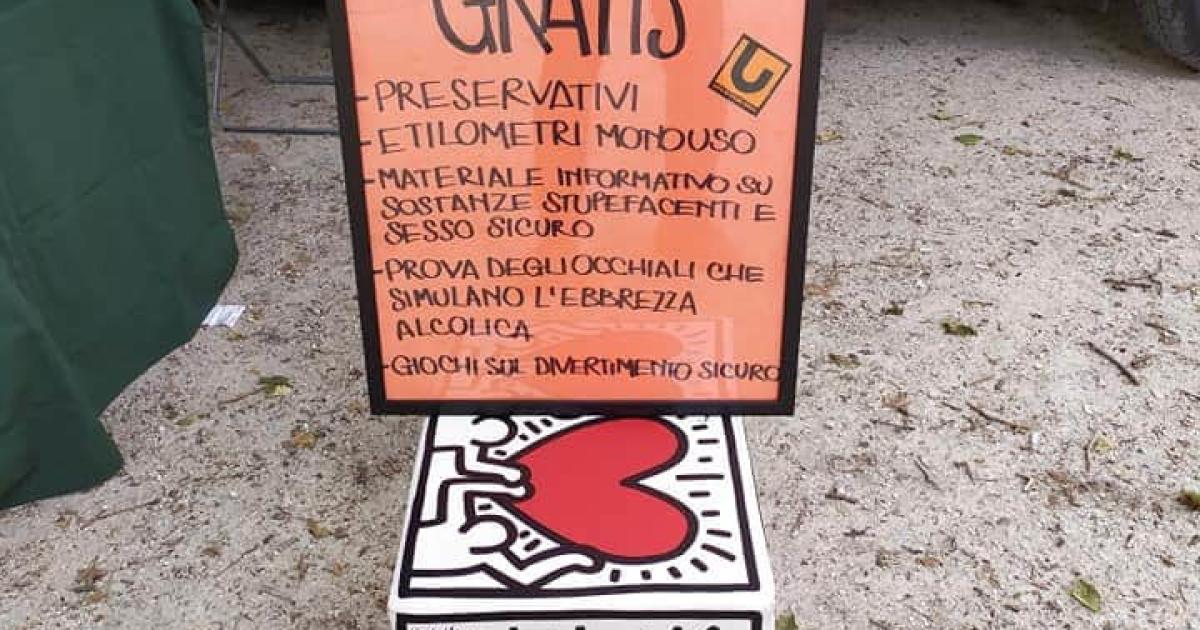 GRATIS
-PRESERVATIVI
-ETILOMETRI MONOUSO
-MATERIALE INFORMATIVO SU
SOSTANZE STUPEFACENTI E
SESSO SICURO
-PROVA DEGLI OCCHIALI CHE
SIMULANO L'EBBREZZA
ALCOLICA
-GIOCHI SUL DIVERTIMENTO SICURO